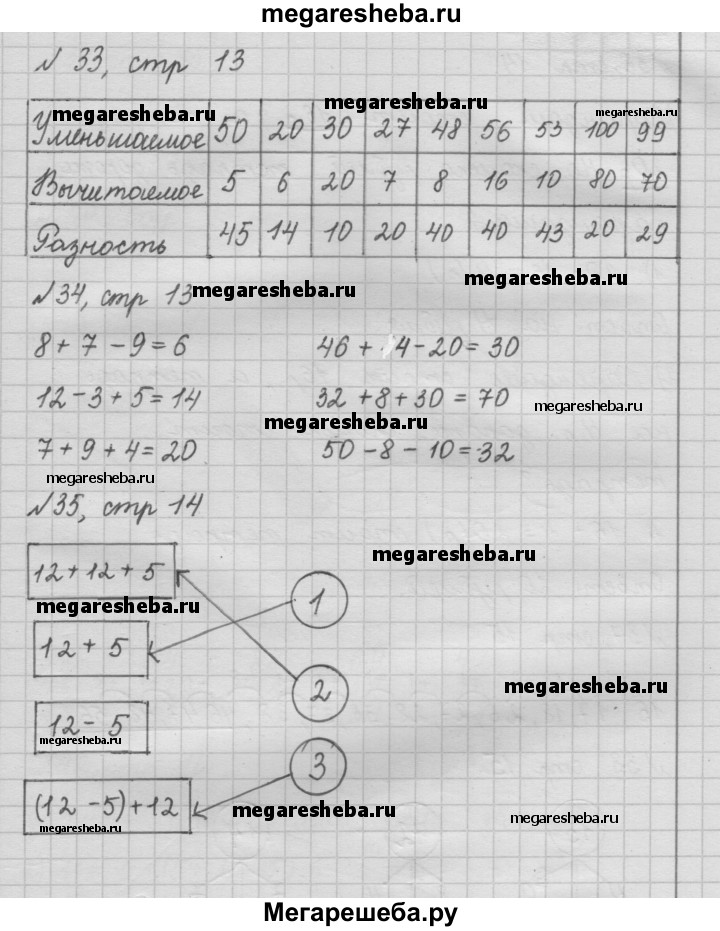 megaresheba.ru
N 33, стр 13
megaresheba.ru
megaresheba.ru
megaresheba.ru
Уменьшаемое 50 20 30 27 48 56 53 100 99
Вычитаемое 5 6 20 7 8 16 10 80 70
Разность 45 14 10 20 40 40 43 20 29
megaresheba.ru
N 34, стр 13
megaresheba.ru
8 + 7 - 9 = 6 46 + 4 - 20 = 30
12 - 3 + 5 = 14 32 + 8 + 30 = 70
megaresheba.ru
megaresheba.ru
7 + 9 + 4 = 20 50 - 8 - 10 = 32
megaresheba.ru
N 35, стр 14
megaresheba.ru
12 + 12 + 5
1
megaresheba.ru
12 + 5
2
megaresheba.ru
12 - 5
megaresheba.ru
3
(12 - 5) + 12
megaresheba.ru
megaresheba.ru
megaresheba.ru
Мегарешеба.ру